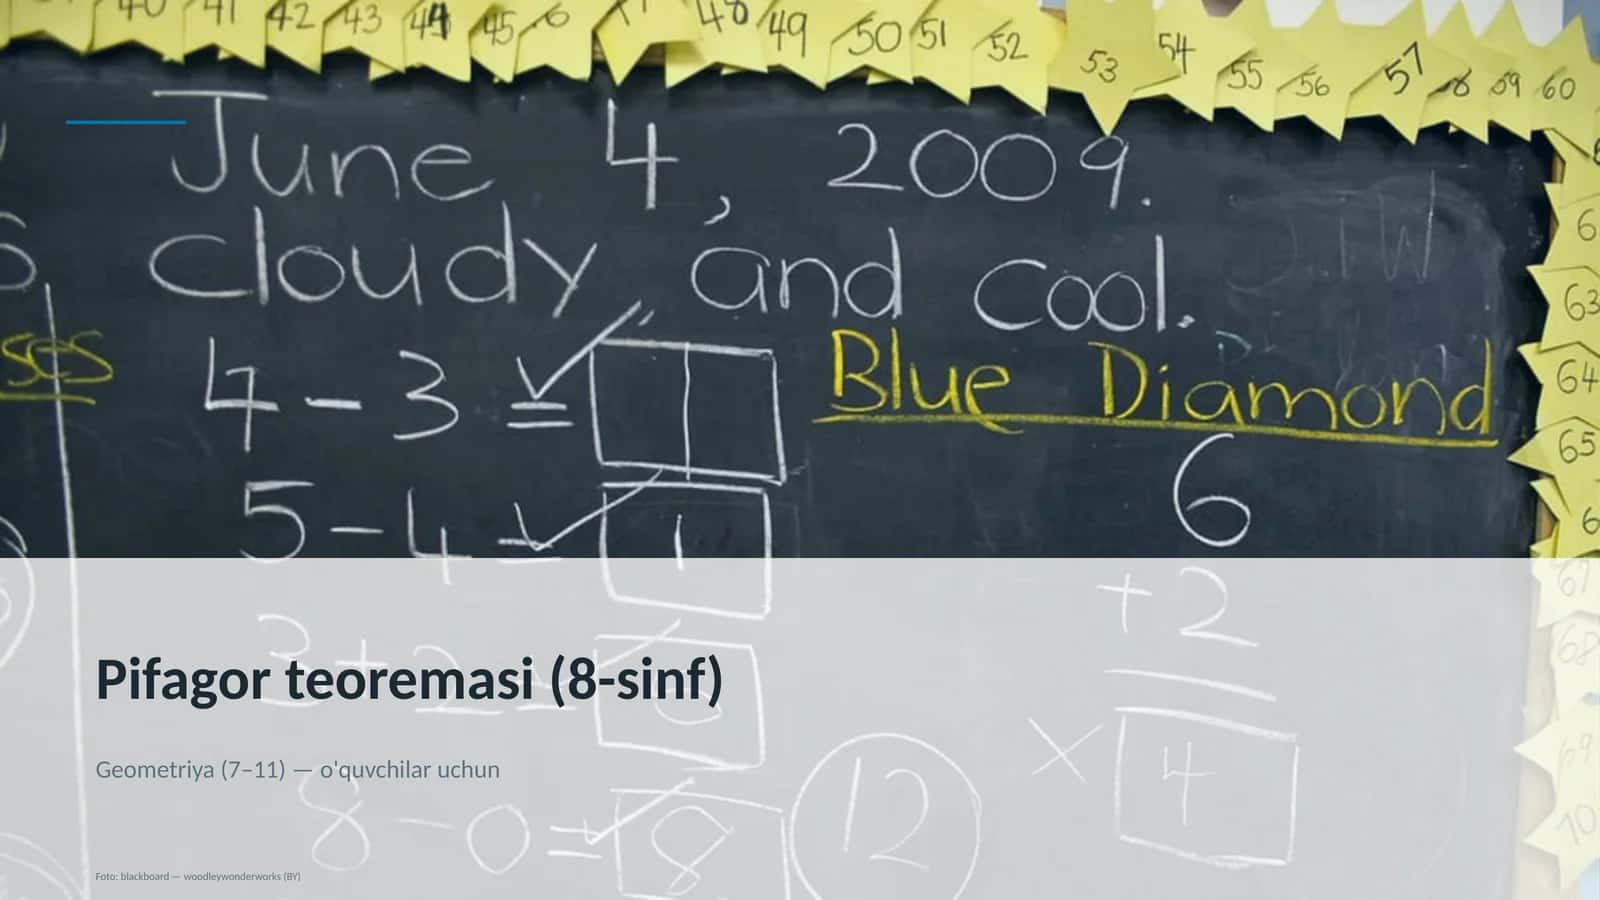 40 41 42 43 44 45 48 49 50 51 52 53 54 55 56 57 58 59 60
June 4, 2009.
Cloudy and cool.
63
ses
4 - 3 =
Blue Diamond
64
65
6
5 - 4 = 1
67
+2
3 + 2 =
68
Pifagor teoremasi (8-sinf)
69
× 4
Geometriya (7–11) — o'quvchilar uchun
12
8 - 0 = 8
70
Foto: blackboard — woodleywonderworks (BY)